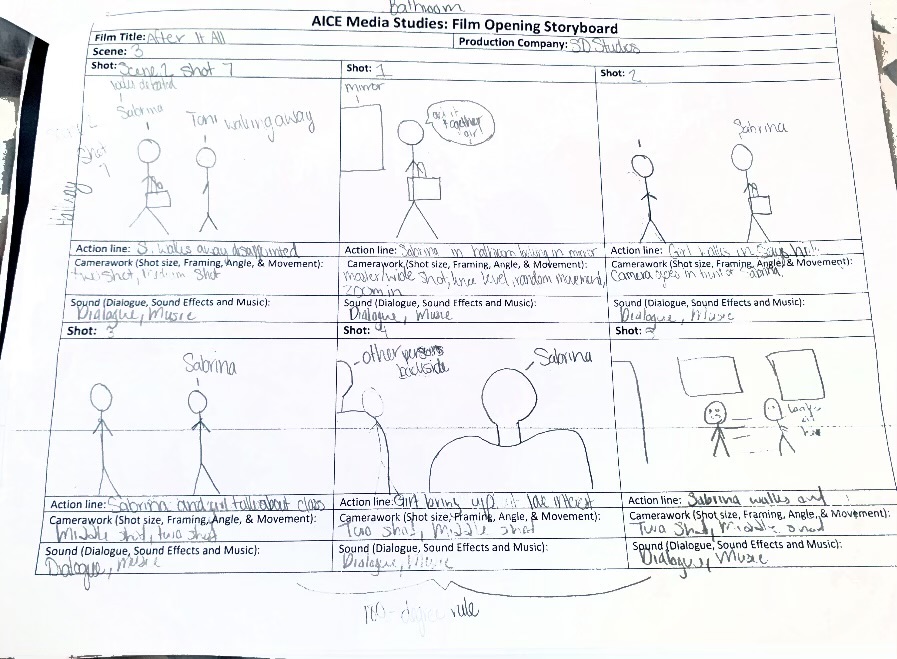 Bathroom
AICE Media Studies: Film Opening Storyboard
Film Title: After It All
Production Company: SD Studios
Scene: 3
Shot: Scene 2 shot 7
Shot: 1
Shot: 2
Sabrina
Toni walking away
Shot
7
Hallway
mirror
together
Sabrina
Action line: S. walks away disappointed
Action line: Sabrina in bathroom looking in mirror
Action line: Girl walks in says hi
Camerawork (Shot size, Framing, Angle, & Movement):
Camerawork (Shot size, Framing, Angle, & Movement):
Camerawork (Shot size, Framing, Angle, & Movement):
two shot, shot
master/wide shot, knee level, random movement,
zoom in
Camera goes in front of
Sound (Dialogue, Sound Effects and Music):
Sound (Dialogue, Sound Effects and Music):
Sound (Dialogue, Sound Effects and Music):
Dialogue, Music
Dialogue, Music
Dialogue, Music
Shot: 3
Shot: 4
Shot:
Sabrina
other persons
backside
Sabrina
Action line: Sabrina and girl talk about class
Action line: Girl bring up love interest
Action line: Sabrina walks
Camerawork (Shot size, Framing, Angle, & Movement):
Camerawork (Shot size, Framing, Angle, & Movement):
Camerawork (Shot size, Framing, Angle, & Movement):
Middle shot, two shot
Two shot, Middle shot
Two Shot, Middle shot
Sound (Dialogue, Sound Effects and Music):
Sound (Dialogue, Sound Effects and Music):
Sound (Dialogue, Sound Effects and Music):
Dialogue, Music
Dialogue, Music
Dialogue, Music
180-degree rule